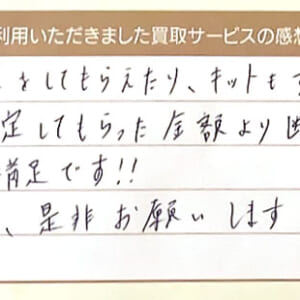 利用いただきました買取サービスの感想
をしてもらえたり、キットも
定してもらった金額より
満足です!!
、是非お願いします